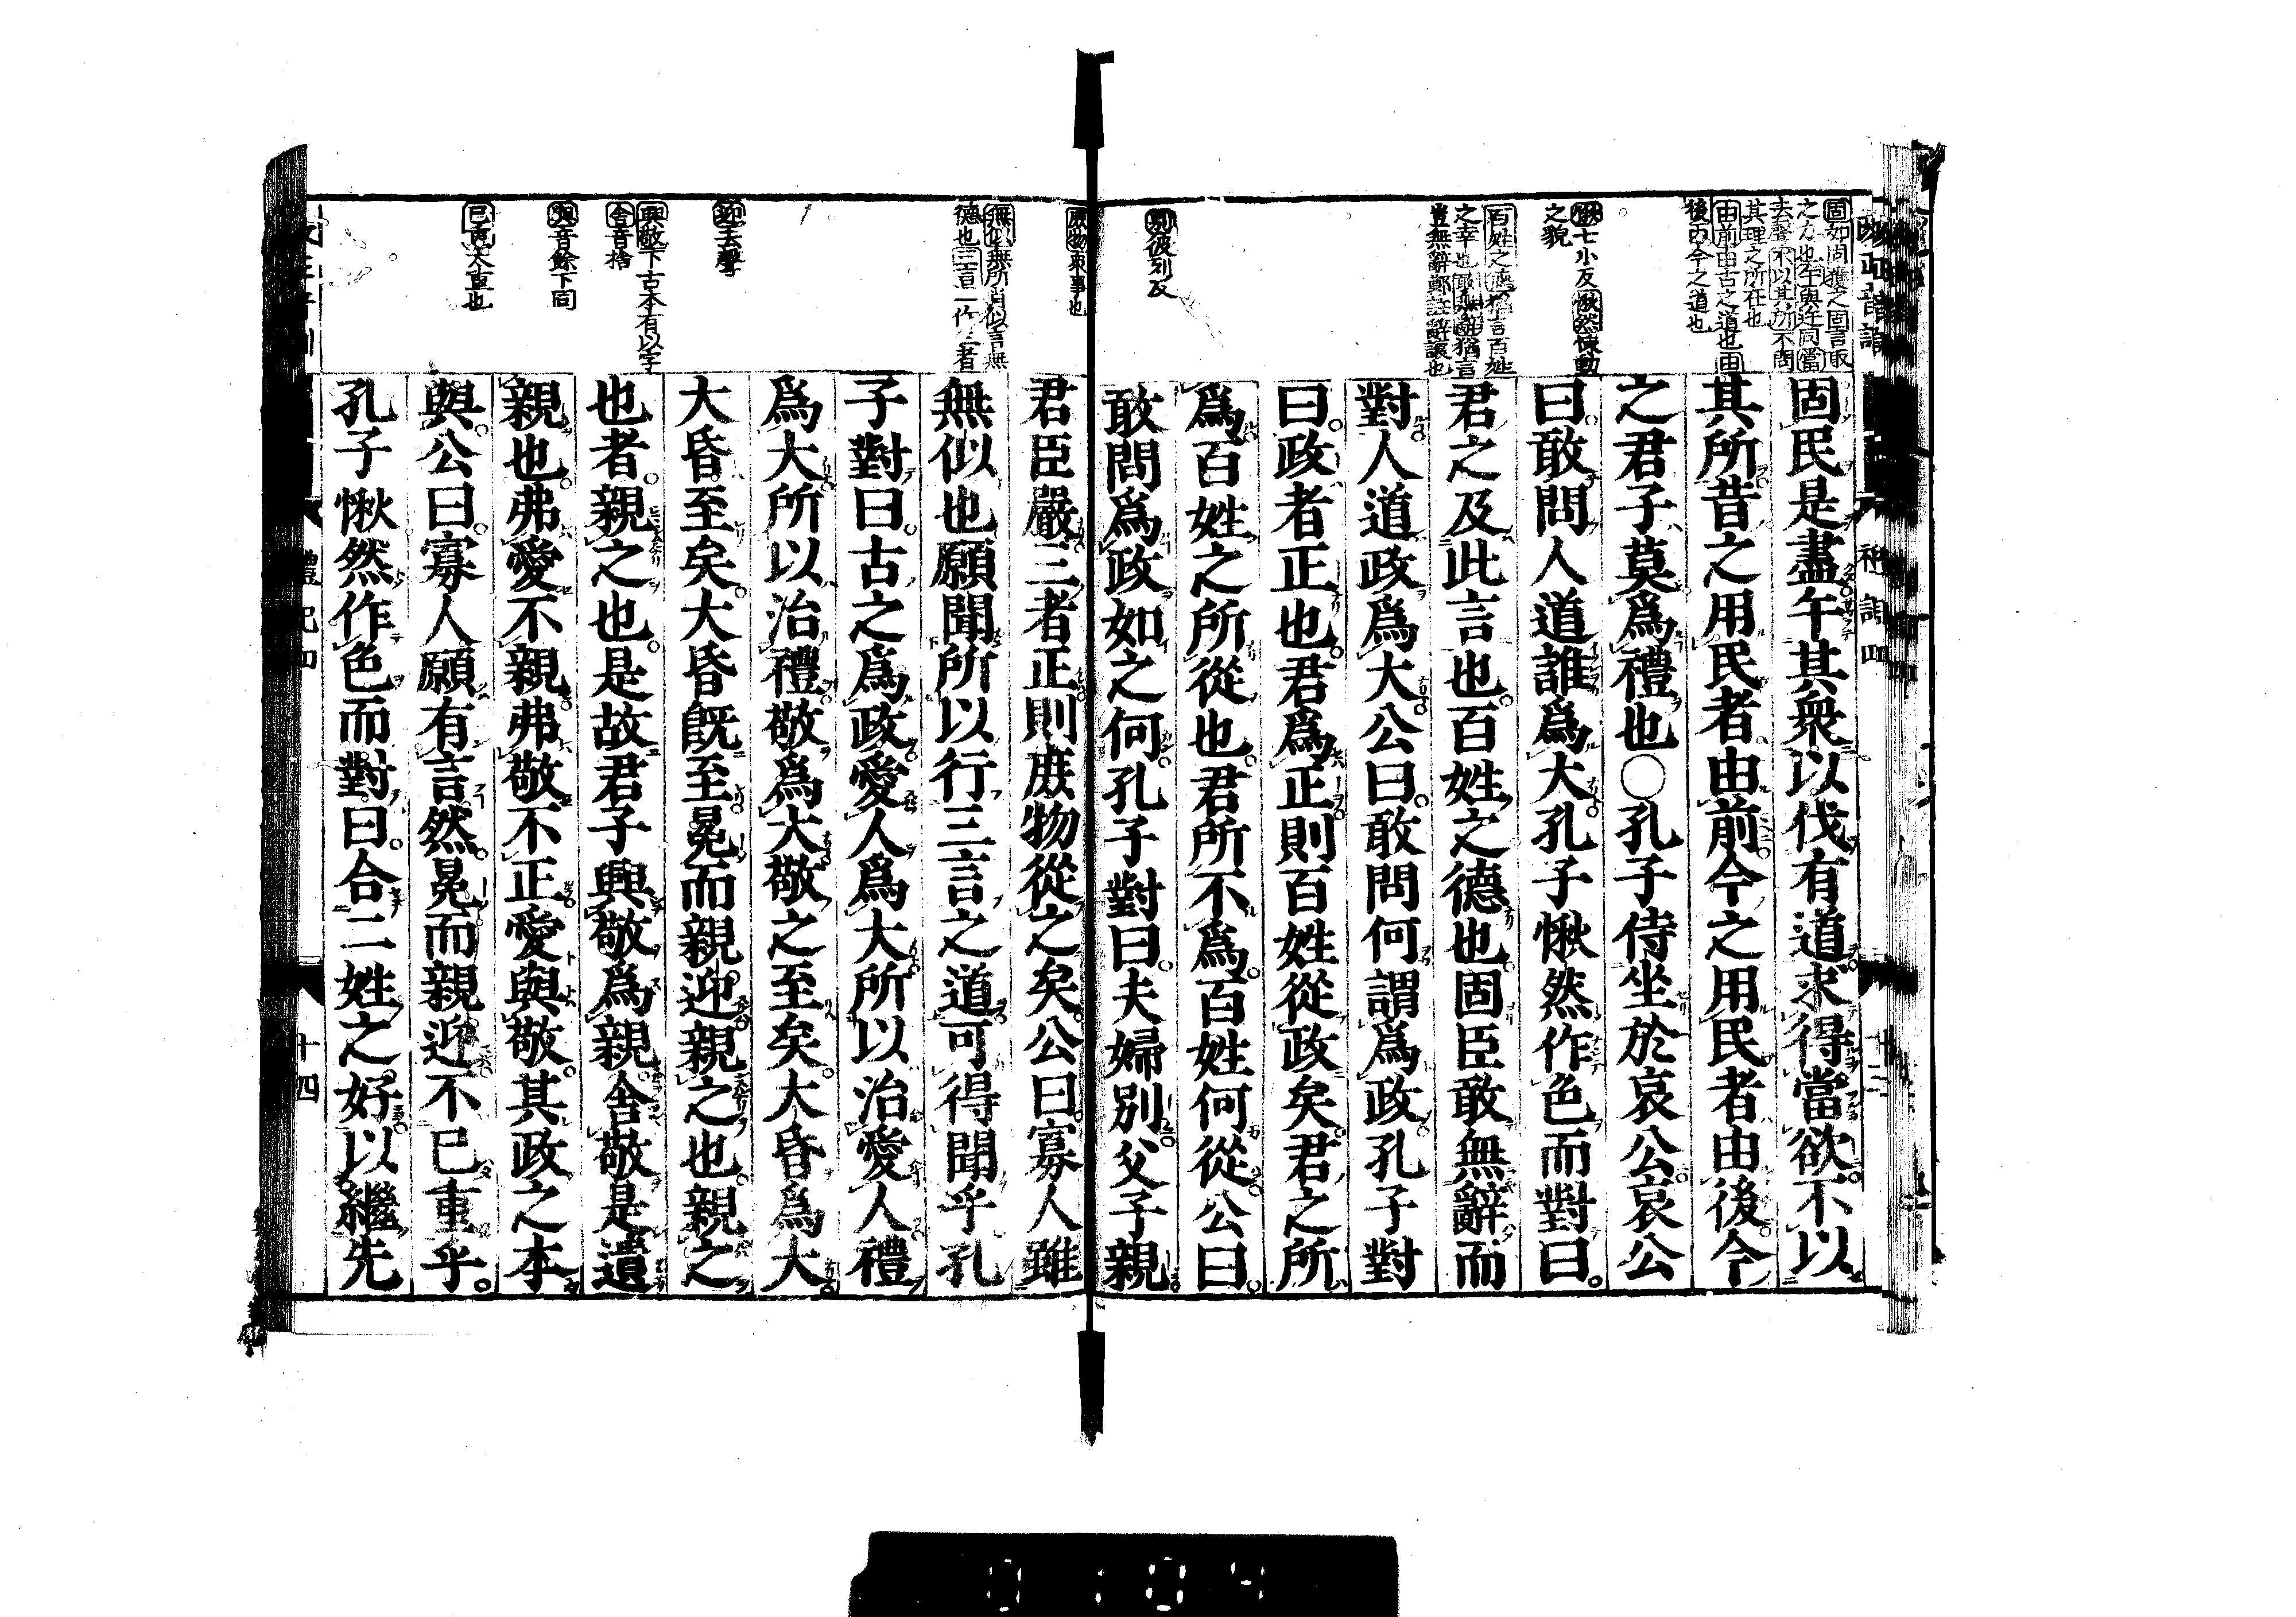 固如固獲之固言取
之力也午與迕同當
去聲不以其所不問
其理之所在也
由前由古之道也由
後由今之道也
愀七小反愀然悚動
之貌
百姓之德猶言百姓
之幸也敢無辭猶言
豈無辭鄭註辭讓也
別彼列反
固民是盡午其衆以伐有道求得當欲不以
其所昔之用民者由前今之用民者由後今
之君子莫爲禮也○孔子侍坐於哀公哀公
曰敢問人道誰爲大孔子愀然作色而對曰
君之及此言也百姓之德也固臣敢無辭而
對人道政爲大公曰敢問何謂爲政孔子對
曰政者正也君爲正則百姓從政矣君之所
爲百姓之所從也君所不爲百姓何從公曰
敢問爲政如之何孔子對曰夫婦別父子親
庶物衆事也
無似無所肖似言無
德也三言一作三者
迎去聲
興敬下古本有以字
舍音捨
與音餘下同
已重太重也
君臣嚴三者正則庶物從之矣公曰寡人雖
無似也願聞所以行三言之道可得聞乎孔
子對曰古之爲政愛人爲大所以治愛人禮
爲大所以治禮敬爲大敬之至矣大昏爲大
大昏至矣大昏旣至冕而親迎親之也親之
也者親之也是故君子興敬爲親舍敬是遺
親也弗愛不親弗敬不正愛與敬其政之本
與公曰寡人願有言然冕而親迎不已重乎
孔子愀然作色而對曰合二姓之好以繼先
禮記四
十四